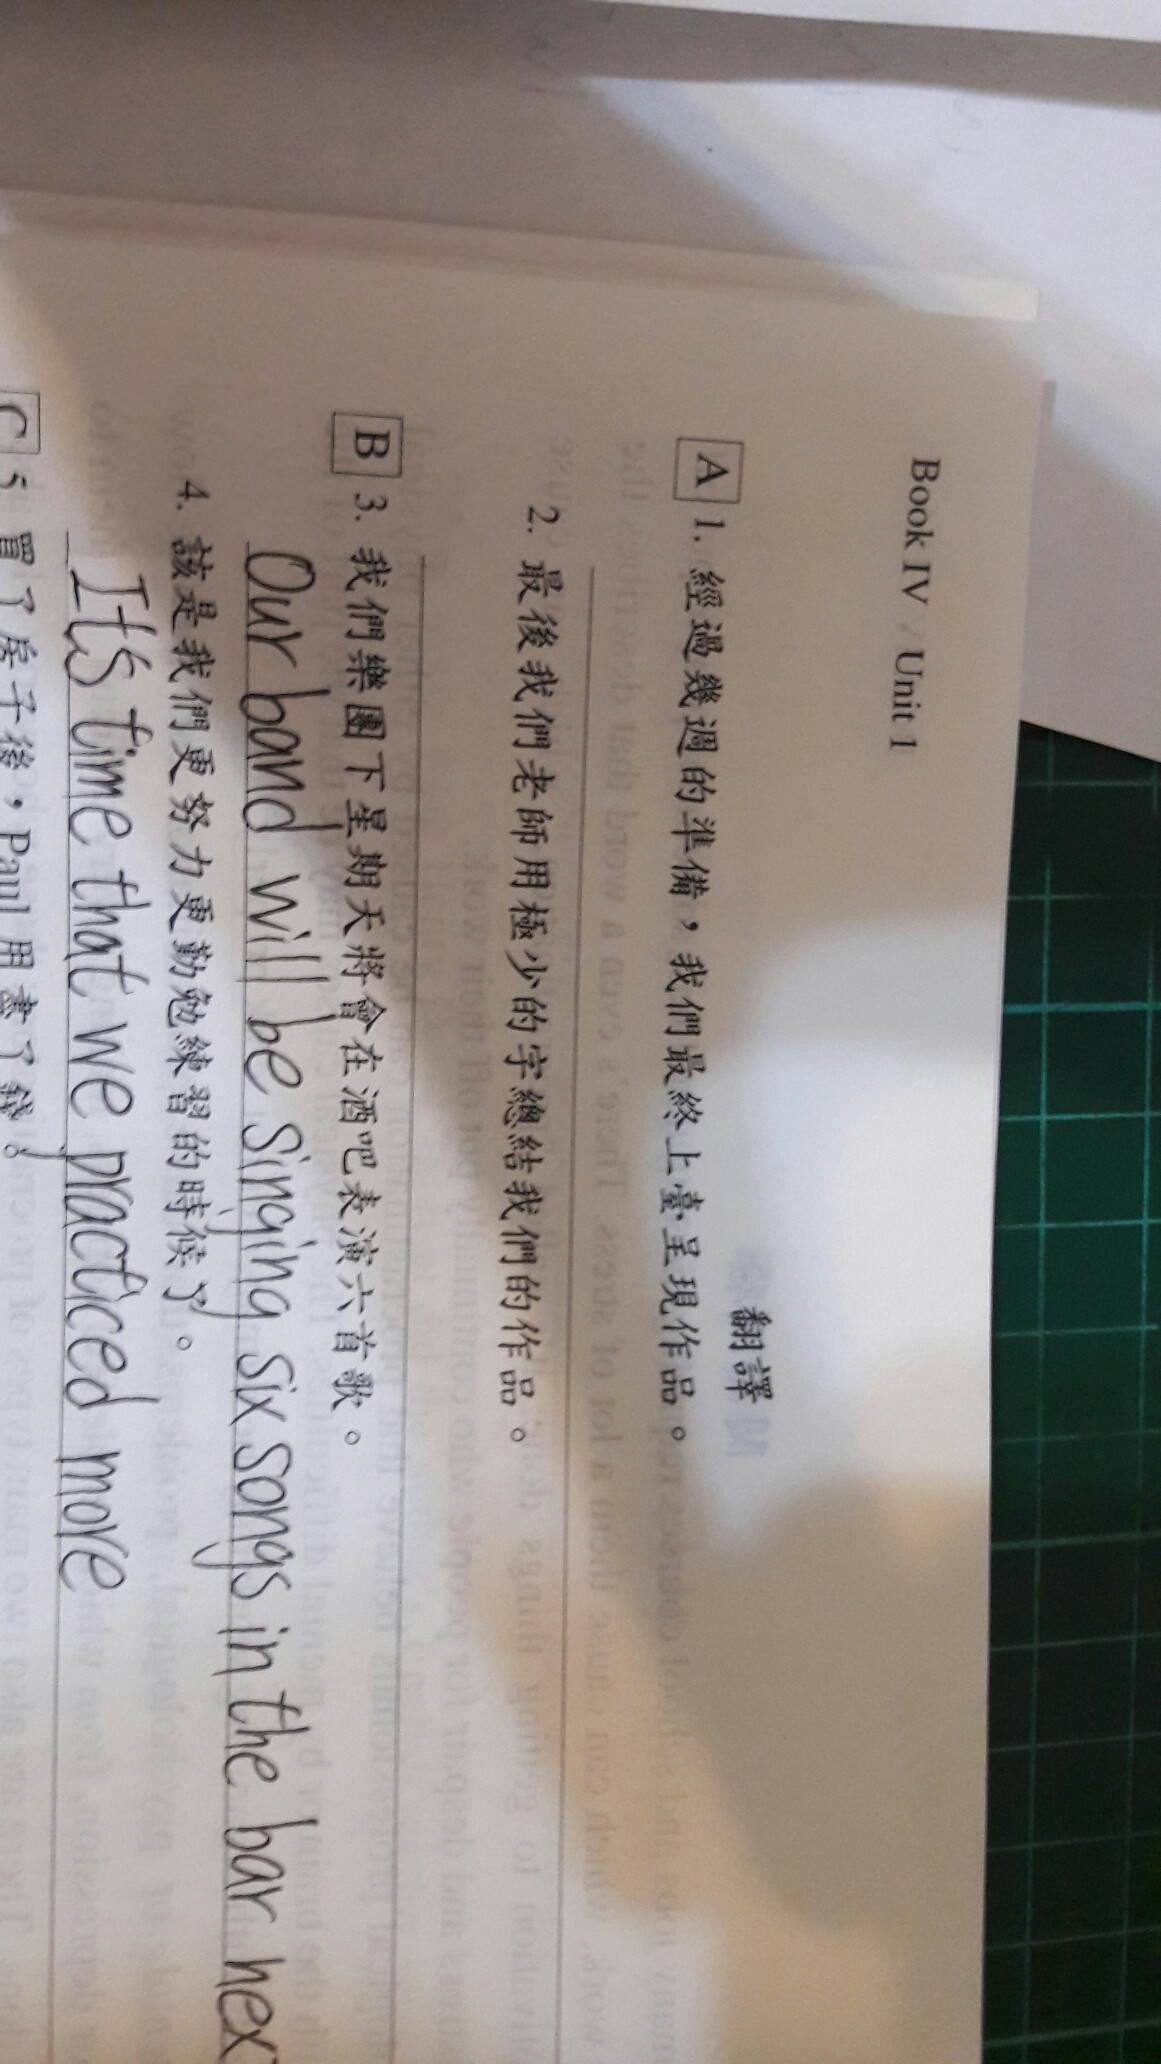 Book IV / Unit 1
翻譯
A 1. 經過幾週的準備，我們最終上臺呈現作品。
2. 最後我們老師用極少的字總結我們的作品。
B 3. 我們樂團下星期天將會在酒吧表演六首歌。
Our band will be singing six songs in the bar nex
4. 該是我們更努力更勤勉練習的時候了。
It's time that we practiced more
C 5 買了房子後，Paul 用盡了錢。